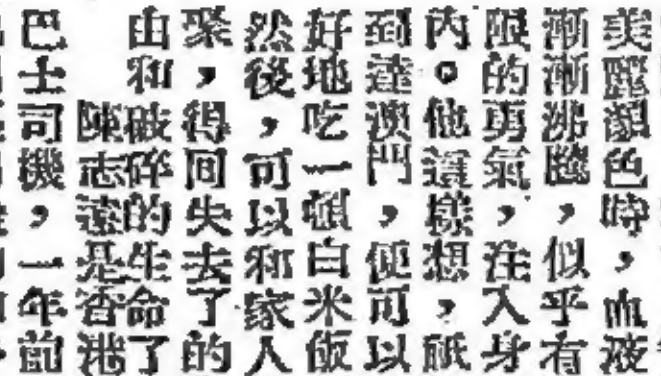 美麗顏色時，血液
漸漸沸騰，似乎有
限的勇氣，注入身
內。他這樣想，祇
到達澳門，便可以
好地吃一頓白米飯
然後，可以和家人
聚，得回失去了的
由和破碎的生命了
陳志遠是香港
巴士司機，一年前